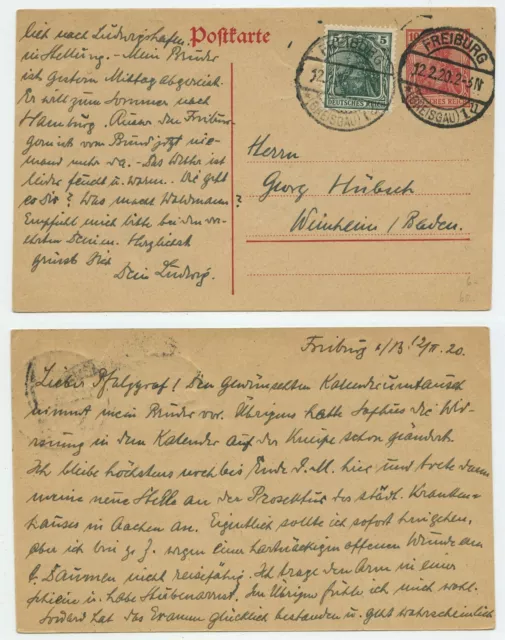 Postkarte
lich nach Ludwigshafen
in Stellung. - Mein Bruder
ist gestern Mittag abgereist.
Er will zum Sommer nach
Hamburg. Ausser den Freiburgern
ist vom Bund jetzt nie-
mand mehr da. - Das Wetter ist
leider feucht u. warm. Wie geht
es Dir? Was macht Waldmann?
Empfiehl mich bitte bei den ver-
ehrten Deinen. Herzlichst
grüsst Dich
Dein Ludwig.
5
DEUTSCHES REICH
FREIBURG
12.
(BREISGAU) 1
10
FREIBURG
12.2.20. 2-3N
(BREISGAU) 1
DEUTSCHES REICH
Herrn
Georg Hübsch
Weinheim / Baden.
Freiburg i/B. 12/II. 20.
Lieber Pfalzgraf! Den gewünschten Kalenderumtausch
nimmt mein Bruder vor. Übrigens hatte die Wid-
mung in dem Kalender auf der Kneipe schon geändert.
Ich bleibe höchstens noch bis Ende d. M. hier und trete dann
meine neue Stelle an der Prosektur des städt. Kranken-
hauses in Aachen an. Eigentlich sollte ich sofort hingehen,
aber ich bin z. Z. wegen einer hartnäckigen offenen Wunde am
l. Daumen nicht reisefähig. Ich trage den Arm in einer
Schiene u. habe Stubenarrest. Im Übrigen fühle ich mich wohl.
hat das Examen glücklich bestanden u. geht wahrscheinlich